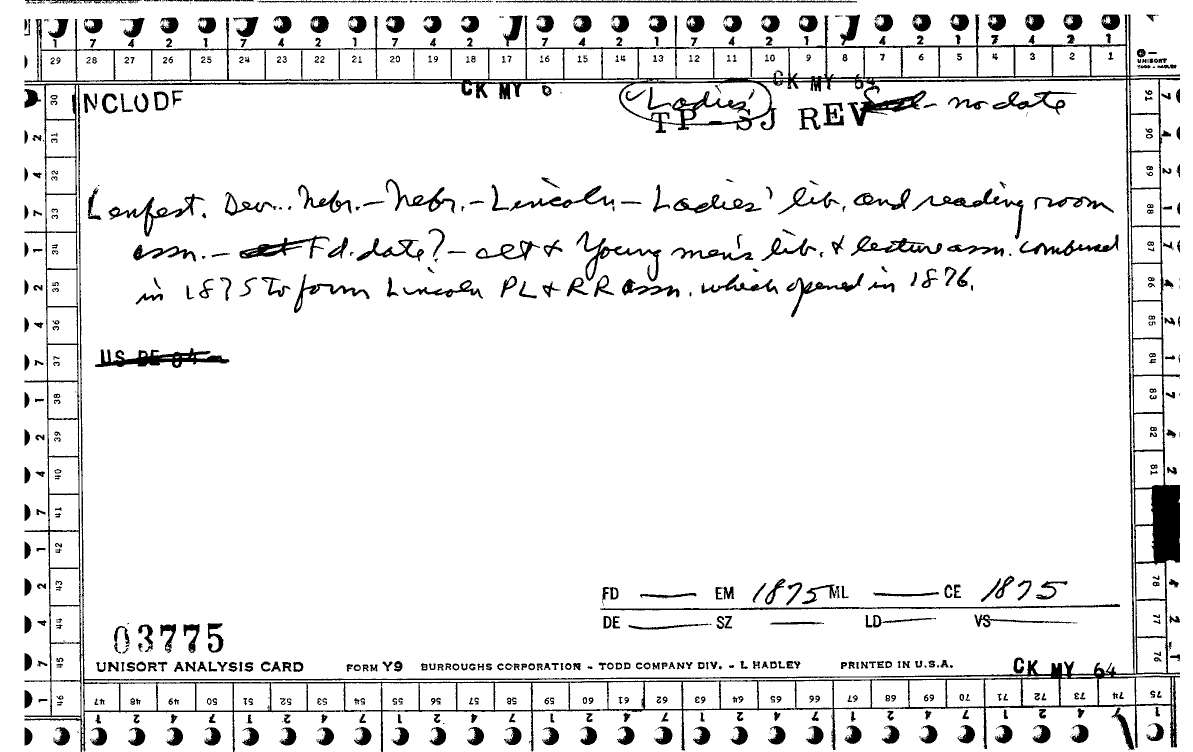 7 4 2 1 7 4 2 1 7 4 2 1 7 4 2 1 7 4 2 1 7 4 2 1 7 4 2 1
29 28 27 26 25 24 23 22 21 20 19 18 17 16 15 14 13 12 11 10 9 8 7 6 5 4 3 2 1
UNISORT
TODD - HADLEY
INCLUDE CK MY 6 Ladies' CK MY 64
TP - SJ REV - no date
Lenfest. Dev... Nebr. - Nebr. - Lincoln - Ladies' lib. and reading room
assn. - Fd. date? - alt & Young men's lib. & lecture assn. combined
in 1875 to form Lincoln PL & RR assn. which opened in 1876.
US DE 84
FD — EM 1875 ML — CE 1875
DE — SZ — LD — VS —
03775
UNISORT ANALYSIS CARD FORM Y9 BURROUGHS CORPORATION - TODD COMPANY DIV. - L HADLEY PRINTED IN U.S.A. CK MY 64
47 48 49 50 51 52 53 54 55 56 57 58 59 60 61 62 63 64 65 66 67 68 69 70 71 72 73 74 75